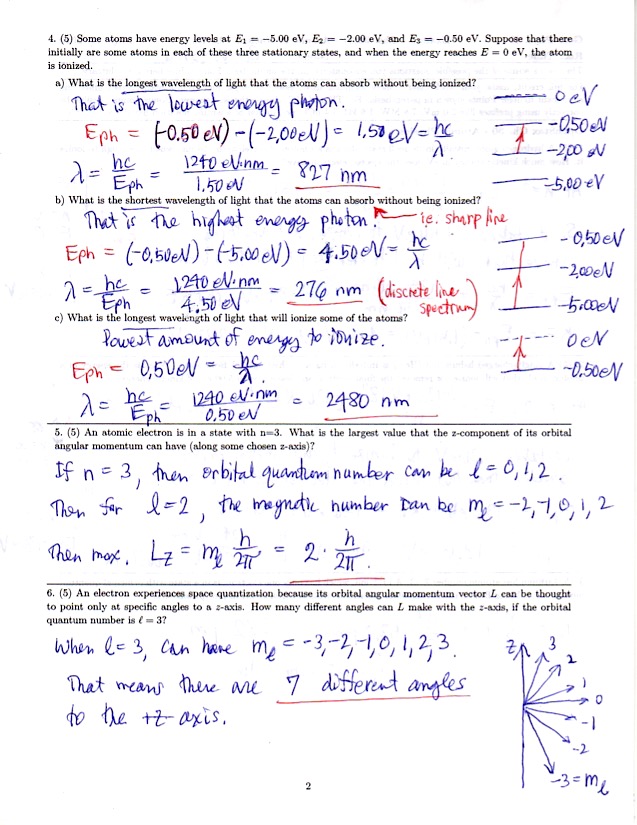 4. (5) Some atoms have energy levels at E₁ = −5.00 eV, E₂ = −2.00 eV, and E₃ = −0.50 eV. Suppose that there
initially are some atoms in each of these three stationary states, and when the energy reaches E = 0 eV, the atom
is ionized.
a) What is the longest wavelength of light that the atoms can absorb without being ionized?
That is the lowest energy photon.
Eph = (-0.50 eV) - (-2,00 eV) = 1,50 eV = hc/λ
λ = hc/Eph = 1240 eV·nm/1.50 eV = 827 nm
0 eV
-0,50 eV
-2,00 eV
-5,00 eV
b) What is the shortest wavelength of light that the atoms can absorb without being ionized?
That is the highest energy photon. ie. sharp line
Eph = (-0,50 eV) - (-5.00 eV) = 4.50 eV = hc/λ
λ = hc/Eph = 1240 eV·nm/4.50 eV = 276 nm (discrete line spectrum)
-0,50 eV
-2,00 eV
-5.00 eV
c) What is the longest wavelength of light that will ionize some of the atoms?
Lowest amount of energy to ionize.
Eph = 0,50 eV = hc/λ.
λ = hc/Eph = 1240 eV·nm/0,50 eV = 2480 nm
0 eV
-0,50 eV
5. (5) An atomic electron is in a state with n=3. What is the largest value that the z-component of its orbital
angular momentum can have (along some chosen z-axis)?
If n = 3, then orbital quantum number can be l = 0, 1, 2.
Then for l = 2, the magnetic number can be mₗ = -2, -1, 0, 1, 2
Then max. Lz = mₗ h/2π = 2 · h/2π.
6. (5) An electron experiences space quantization because its orbital angular momentum vector L can be thought
to point only at specific angles to a z-axis. How many different angles can L make with the z-axis, if the orbital
quantum number is ℓ = 3?
When l = 3, can have mₗ = -3, -2, -1, 0, 1, 2, 3.
That means there are 7 different angles
to the +z axis.
z
3
2
1
0
-1
-2
-3 = mₗ
2